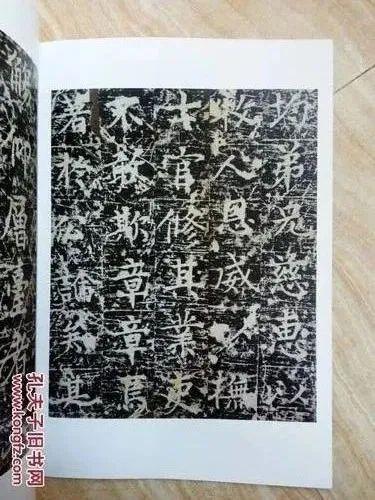 均弟兄慈惠以
牧人恩威撫
士官修其業吏
不敢欺章章焉
若其
層
孔夫子旧书网
www.kongfz.com